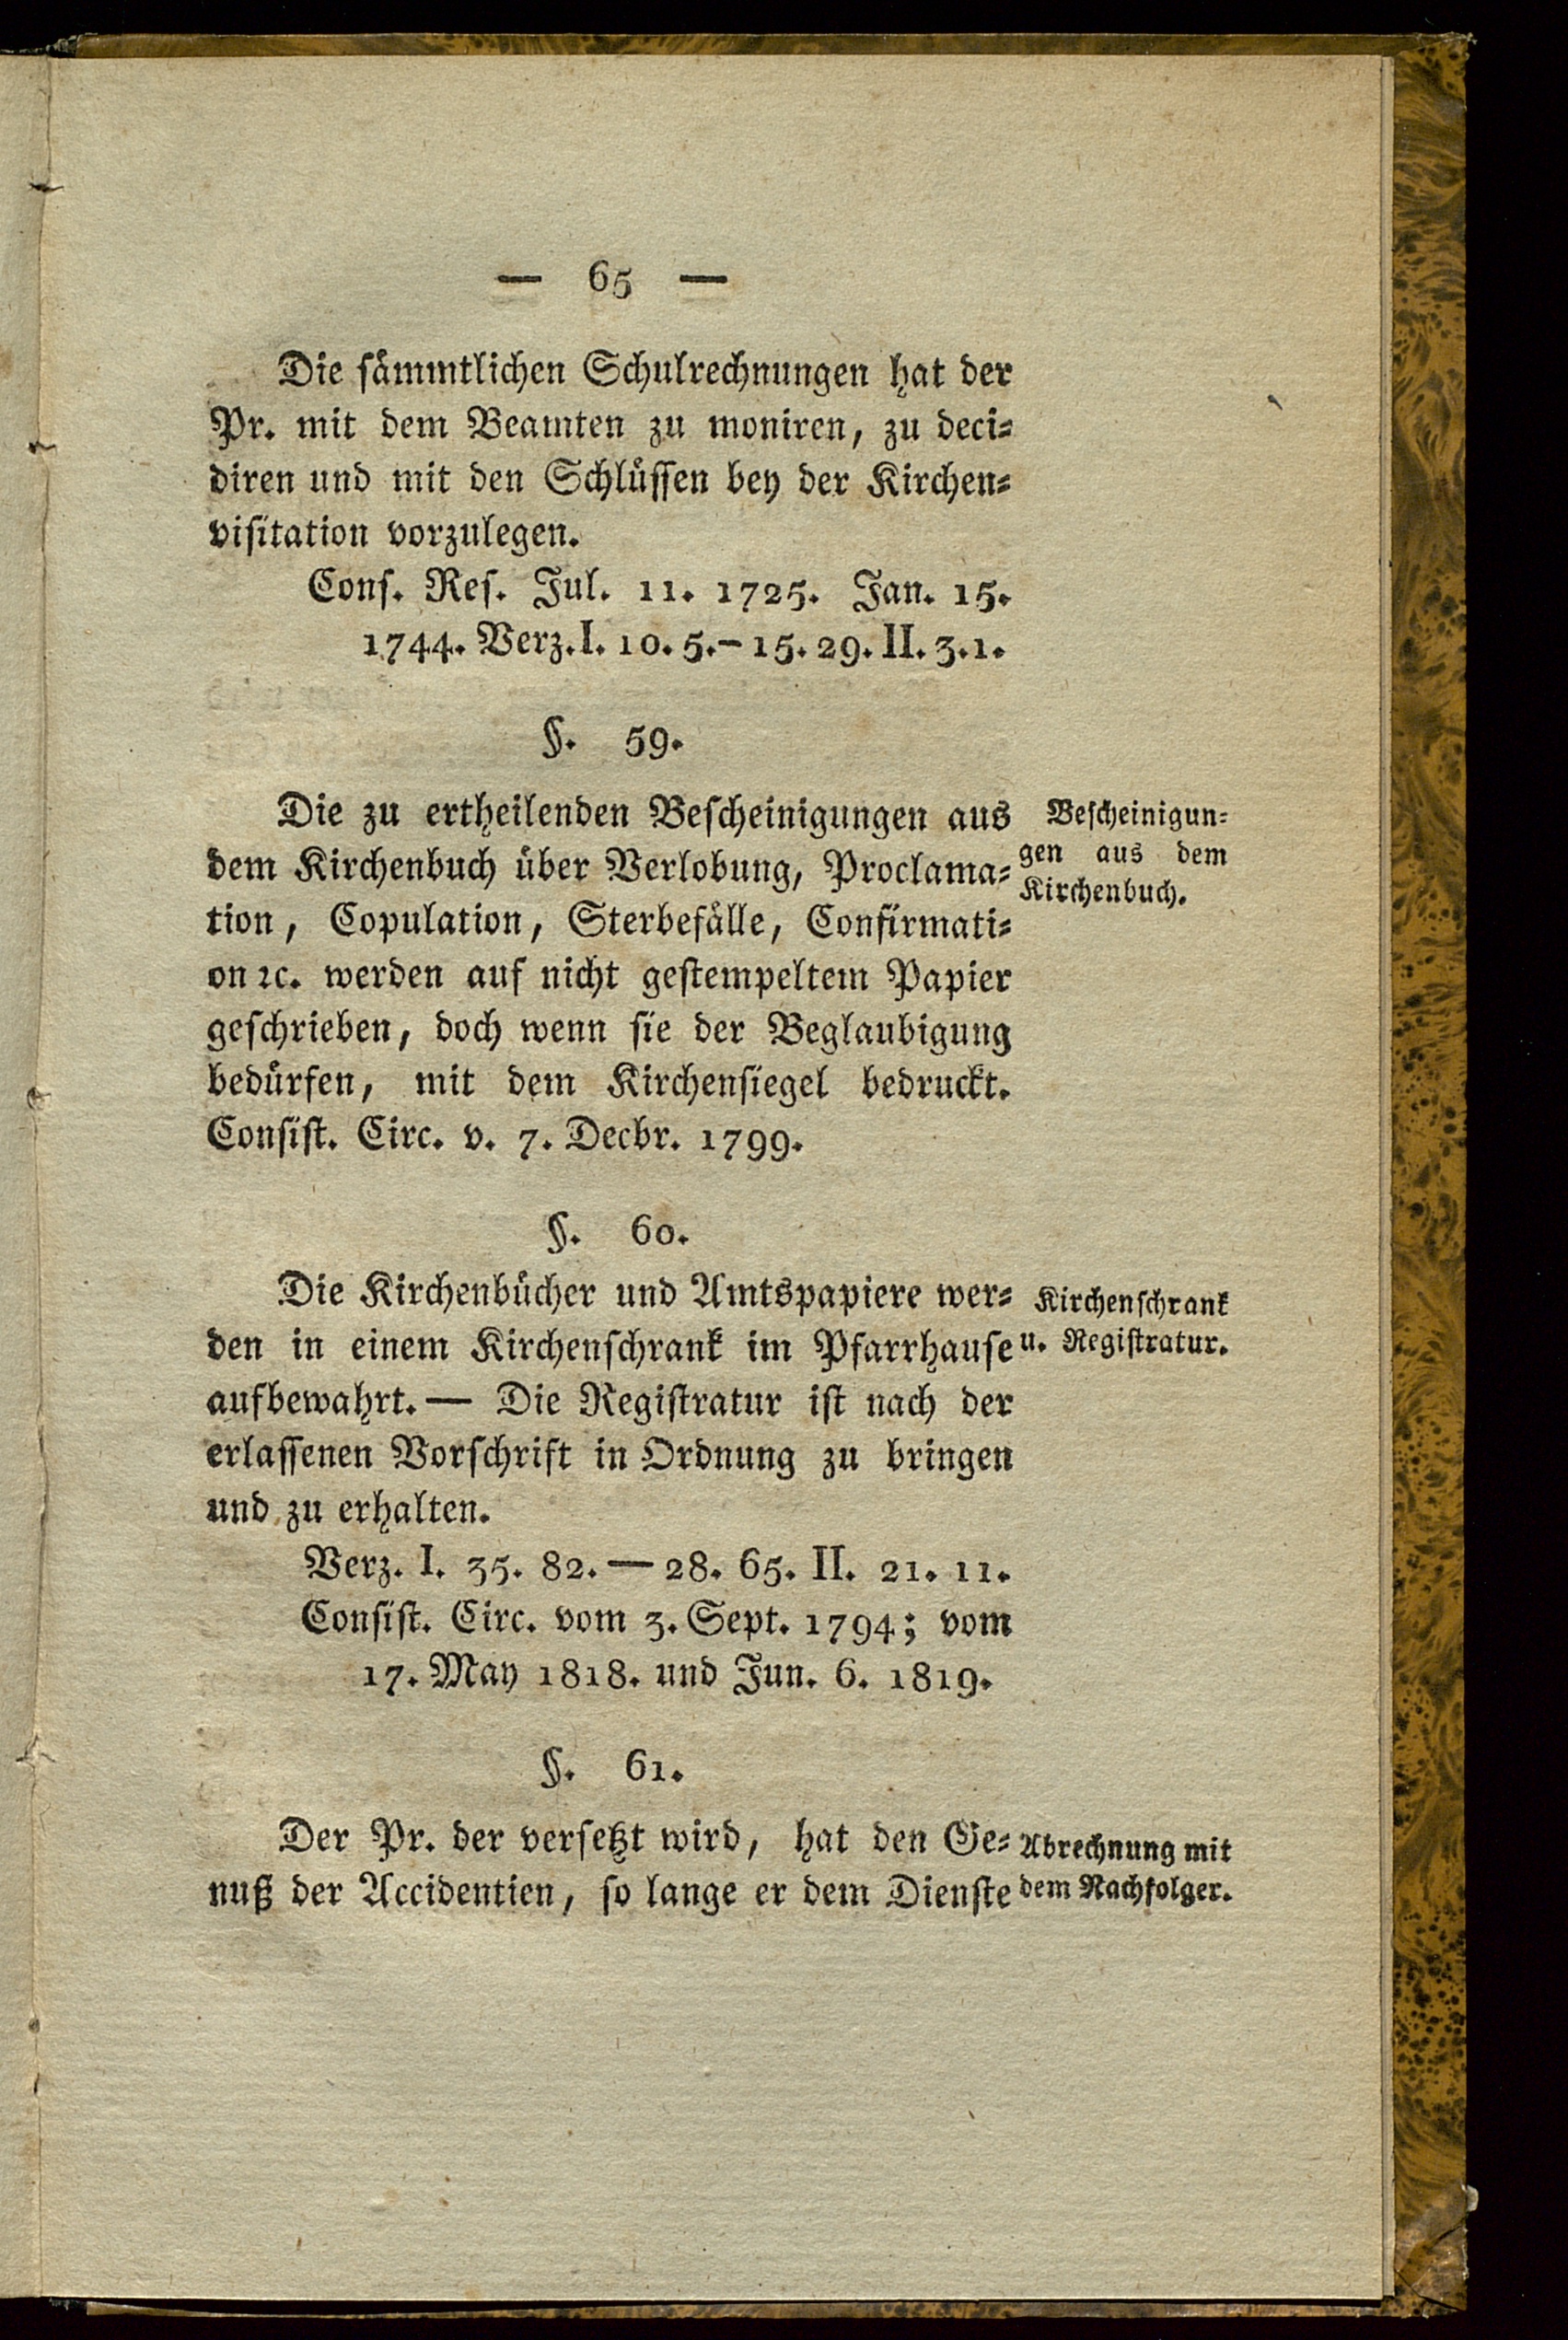 — 65 —
Die sämmtlichen Schulrechnungen hat der
Pr. mit dem Beamten zu moniren, zu deci-
diren und mit den Schlüssen bey der Kirchen-
visitation vorzulegen.
Cons. Res. Jul. 11. 1725. Jan. 15.
1744. Verz. I. 10. 5.–15. 29. II. 3. 1.
§. 59.
Die zu ertheilenden Bescheinigungen aus
dem Kirchenbuch über Verlobung, Proclama-
tion, Copulation, Sterbefälle, Confirmati-
on ꝛc. werden auf nicht gestempeltem Papier
geschrieben, doch wenn sie der Beglaubigung
bedürfen, mit dem Kirchensiegel bedruckt.
Consist. Circ. v. 7. Decbr. 1799.
Bescheinigun-
gen aus dem
Kirchenbuch.
§. 60.
Die Kirchenbücher und Amtspapiere wer-
den in einem Kirchenschrank im Pfarrhause
aufbewahrt. — Die Registratur ist nach der
erlassenen Vorschrift in Ordnung zu bringen
und zu erhalten.
Kirchenschrank
u. Registratur.
Verz. I. 35. 82. — 28. 65. II. 21. 11.
Consist. Circ. vom 3. Sept. 1794; vom
17. May 1818. und Jun. 6. 1819.
§. 61.
Der Pr. der versetzt wird, hat den Ge-
nuß der Accidentien, so lange er dem Dienste
Abrechnung mit
dem Nachfolger.